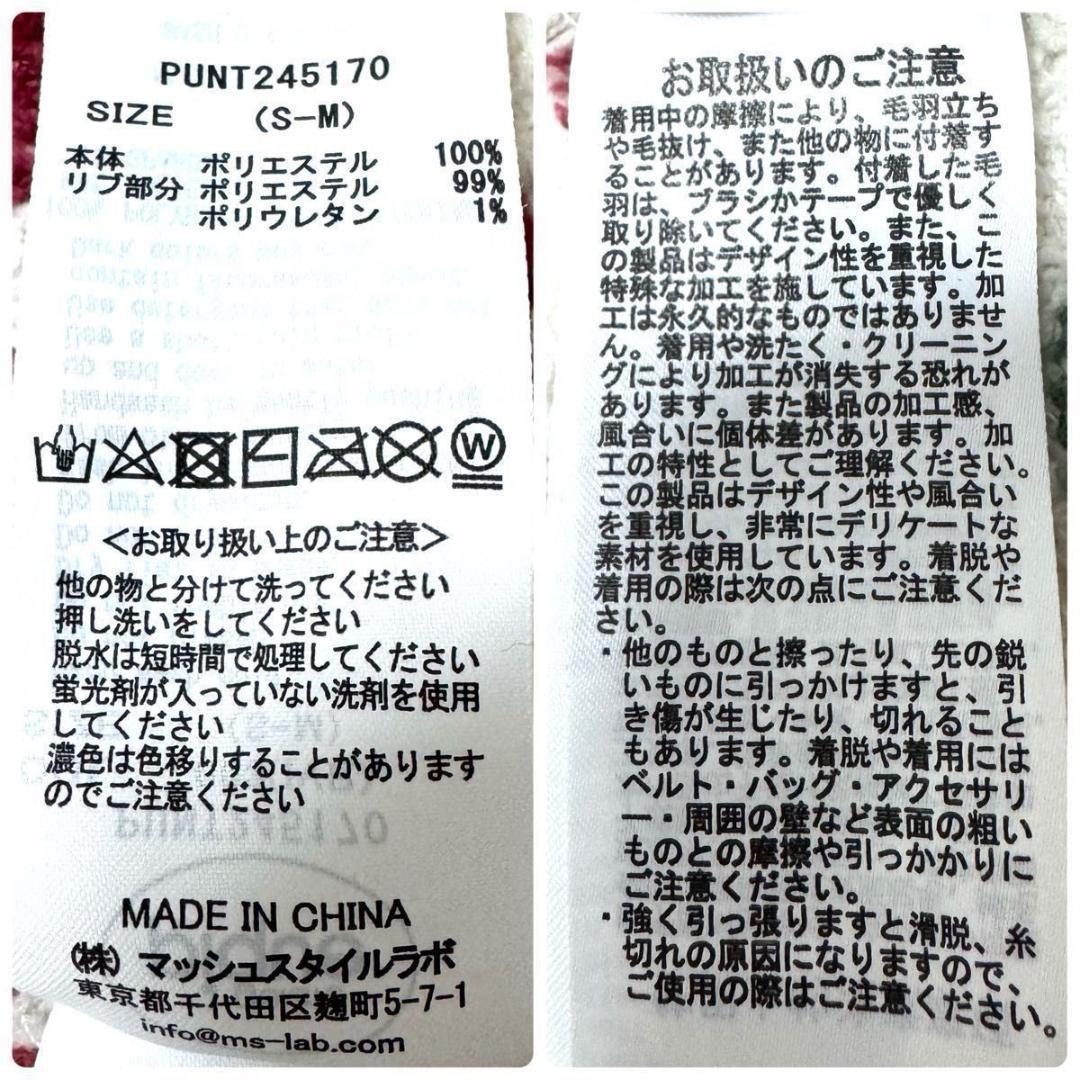 PUNT245170
SIZE (S-M)
本体 ポリエステル 100%
リブ部分 ポリエステル 99%
ポリウレタン 1%
W
<お取り扱い上のご注意>
他の物と分けて洗ってください
押し洗いをしてください
脱水は短時間で処理してください
蛍光剤が入っていない洗剤を使用
してください
濃色は色移りすることがあります
のでご注意ください
MADE IN CHINA
(株) マッシュスタイルラボ
東京都千代田区麹町5-7-1
info@ms-lab.com
お取扱いのご注意
着用中の摩擦により、毛羽立ち
や毛抜け、また他の物に付着す
ることがあります。付着した毛
羽は、ブラシかテープで優しく
取り除いてください。また、こ
の製品はデザイン性を重視した
特殊な加工を施しています。加
工は永久的なものではありませ
ん。着用や洗たく・クリーニン
グにより加工が消失する恐れが
あります。また製品の加工感、
風合いに個体差があります。加
工の特性としてご理解ください。
この製品はデザイン性や風合い
を重視し、非常にデリケートな
素材を使用しています。着脱や
着用の際は次の点にご注意くだ
さい。
・他のものと擦ったり、先の鋭
いものに引っかけますと、引
き傷が生じたり、切れること
もあります。着脱や着用には
ベルト・バッグ・アクセサリ
ー・周囲の壁など表面の粗い
ものとの摩擦や引っかかりに
ご注意ください。
・強く引っ張りますと滑脱、糸
切れの原因になりますので、
ご使用の際はご注意ください。